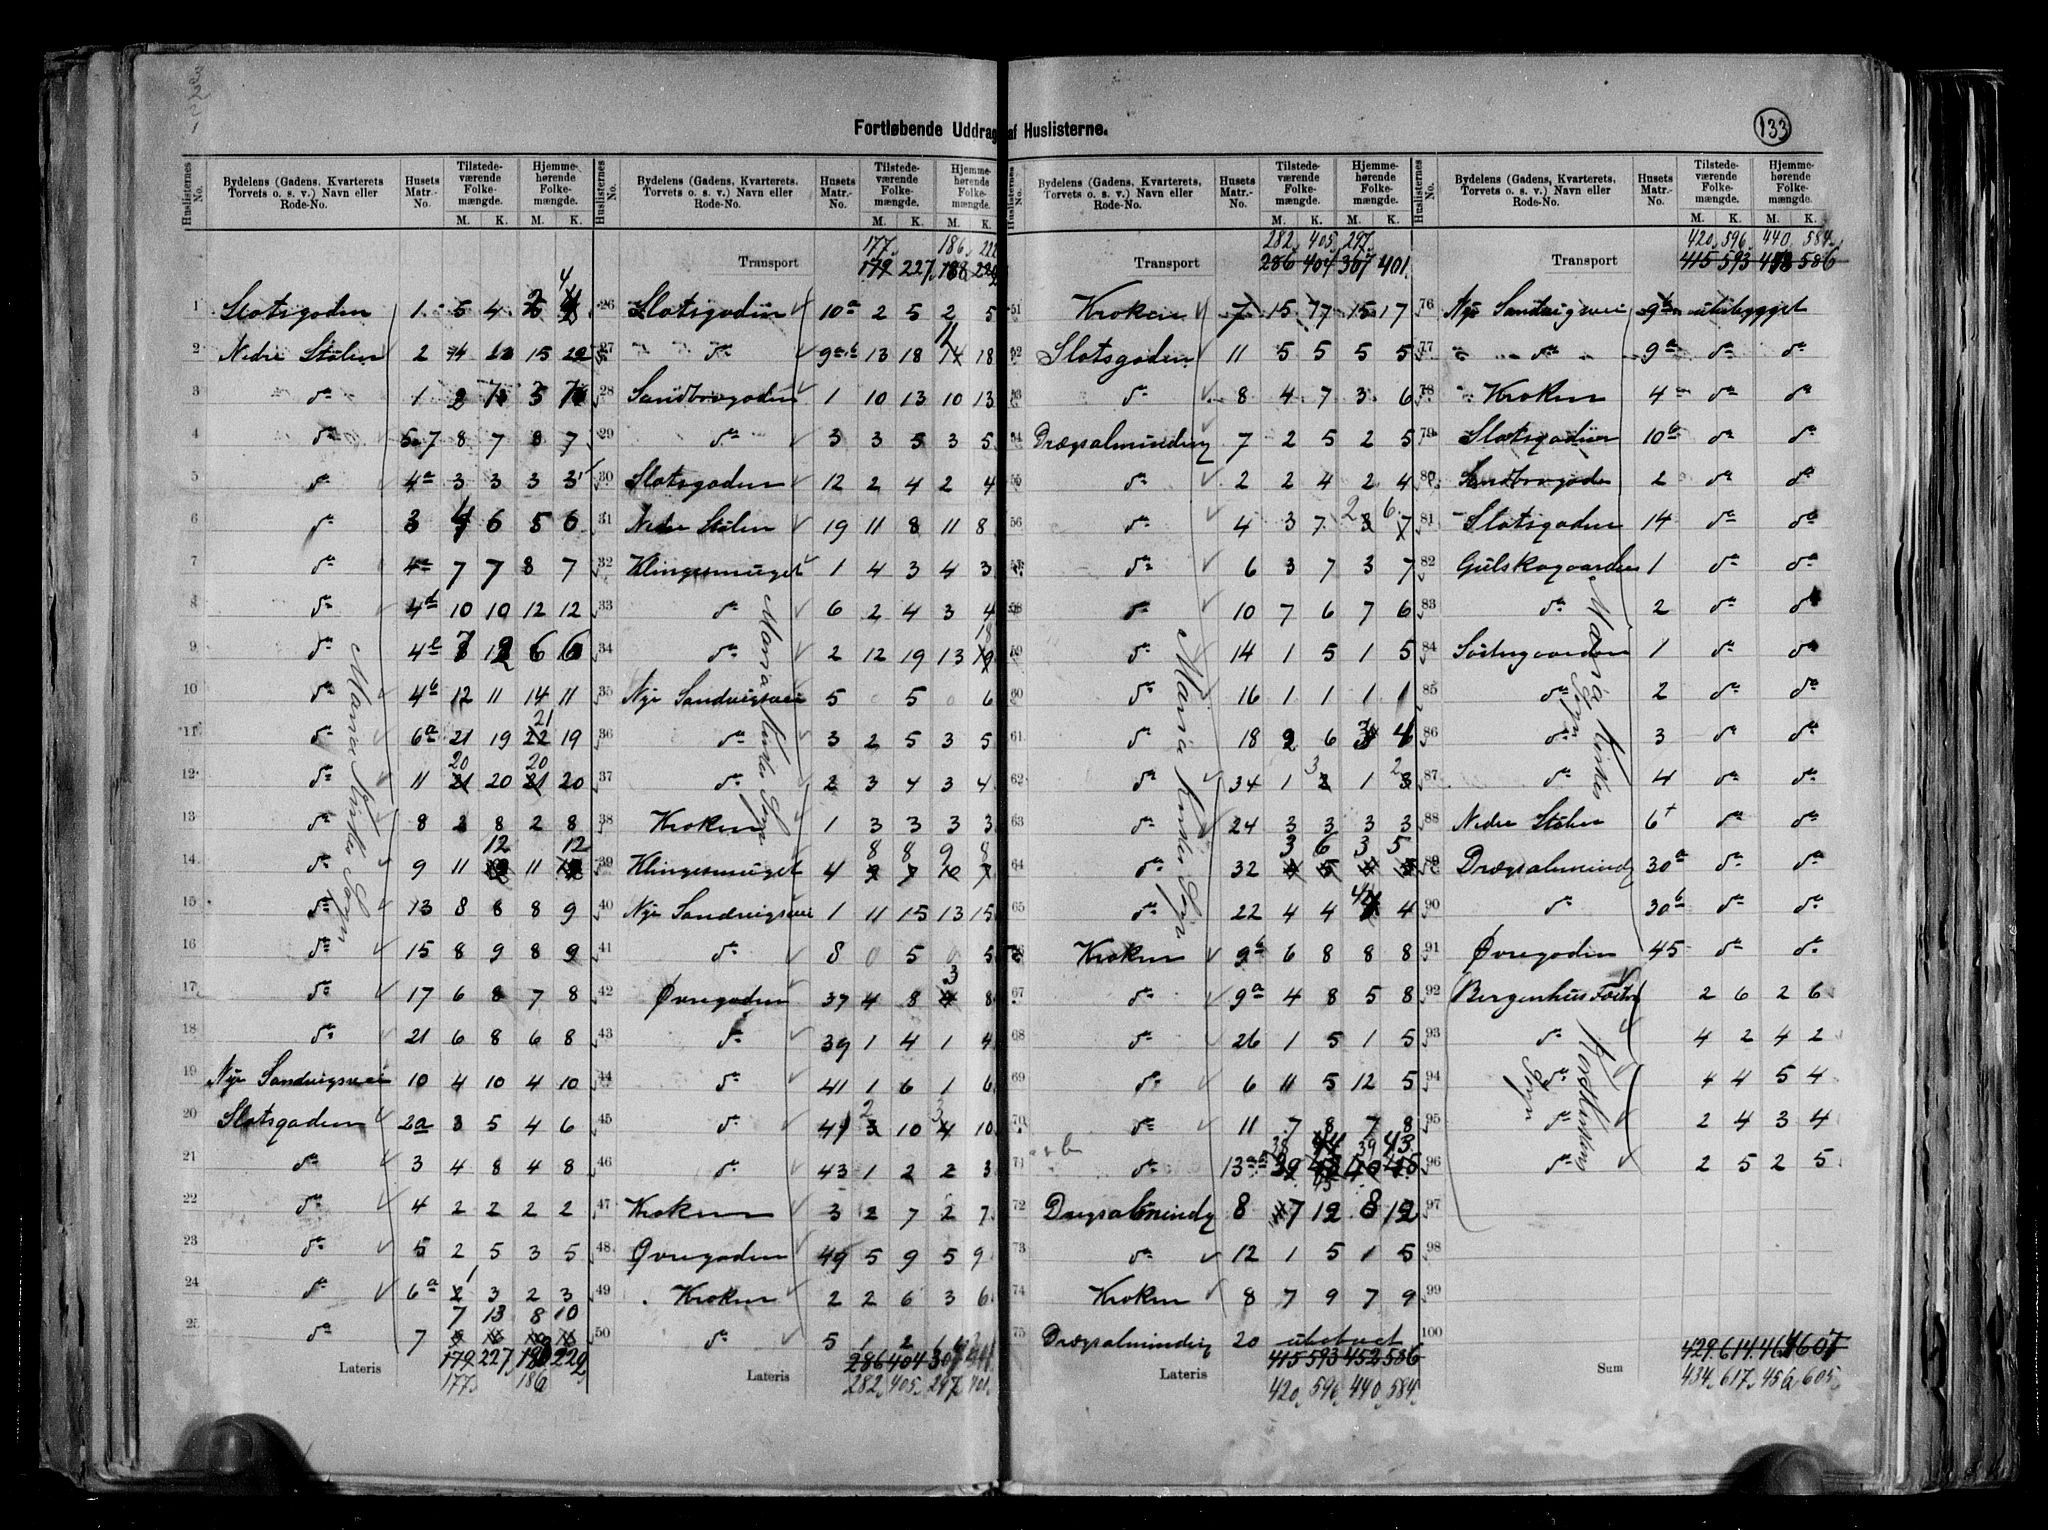 133
Fortløbende Uddrag af Huslisterne.
Huslisternes No. Bydelens (Gadens, Kvarterets, Torvets o. s. v.) Navn eller Rode-No. Husets Matr.-No. Tilstedeværende Folkemængde. M. K. Hjemmehørende Folkemængde. M. K.
1 Slotsgaden 1 5 4
2 Nedre Stølen 2
3 do 1 2
4 do 5 7 8 7 8 7
5 do 4a 3 3 3 3
6 do 3 4 6 5 6
7 do 7 7 8 7
8 do 4d 10 10 12 12
9 do
10 do 4b 12 11 14 11
11 do 6a 21 19 21 19
12 do 11 20 20 20 20
13 do 8 2 8 2 8
14 do 9 11 12 11 12
15 do 13 8 8 8 9
16 do 15 8 9 8 9
17 do 17 6 8 7 8
18 do 21 6 8 6 8
19 Nye Sandvigsvei 10 4 10 4 10
20 Slotsgaden 2a 3 5 4 6
21 do 3 4 8 4 8
22 do 4 2 2 2 2
23 do 5 2 5 3 5
24 do 6a 1 3 2 3
25 do 7 7 13 8 10
Lateris 179 227 229
177 186
Transport 177 186 222
179 227 188 229
26 Slotsgaden 10a 2 5 2 5
27 do 9a b 13 18 11 18
28 Sandbrogaden 1 10 13 10 13
29 do 3 3 5 3 5
30 Slotsgaden 12 2 4 2 4
31 Nedre Stølen 19 11 8 11 8
32 Klingesmuget 1 4 3 4 3
33 do 6 2 4 3 4
34 do 2 12 19 13 18
35 Nye Sandvigsvei 5 0 5 0 6
36 do 3 2 5 3 5
37 do 2 3 4 3 4
38 Kroken 1 3 3 3 3
39 Klingesmuget 4 8 8 9 8
40 Nye Sandvigsvei 1 11 15 13 15
41 do 8 0 5 0 5
42 Øvregaden 37 4 8 3 8
43 do 39 1 4 1 4
44 do 41 1 6 1 6
45 do 2 10 3 10
46 do 43 1 2 2 3
47 Kroken 3 2 7 2 7
48 Øvregaden 49 5 9 5 9
49 Kroken 2 2 6 3 6
50 do 5 1 2
Lateris 286 404 307 401
282 405 297 401
Transport 282 405 297
286 404 307 401
51 Kroken 7 15 17 15 17
52 Slotsgaden 11 5 5 5 5
53 do 8 4 7 3 6
54 Drægsalmindingen 7 2 5 2 5
55 do 2 2 4 2 4
56 do 4 3 7 2 6
57 do 6 3 7 3 7
58 do 10 7 6 7 6
59 do 14 1 5 1 5
60 do 16 1 1 1 1
61 do 18 2 6
62 do 34 1 3 1 2
63 do 24 3 3 3 3
64 do 32 3 6 3 5
65 do 22 4 4 4 4
66 Kroken 9b 6 8 8 8
67 do 9a 4 8 5 8
68 do 26 1 5 1 5
69 do 6 11 5 12 5
70 do 11 7 8 7 8
71 do 13a 38 44 39 43
72 Drægsalminding 8 7 12 8 12
73 do 12 1 5 1 5
74 Kroken 8 7 9 7 9
75 Drægsalminding 20 ubeboet
Lateris 415 593 452 586
420 596 440 584
Transport 420 596 440 584
415 593 586
76 Nye Sandvigsvei 9b ubebygget
77 do 9a do do
78 Kroken 4 do do
79 Slotsgaden 10b do do
80 Sandbrogaden 2 do do
81 Slotsgaden 14 do do
82 Gulskogaarden 1 do do
83 do 2 do do
84 Søstergaarden 1 do do
85 do 2 do do
86 do 3 do do
87 do 4 do do
88 Nedre Stølen 6 do do
89 Drægsalminding 30a do do
90 do 30b do do
91 Øvregaden 45 do do
92 Bergenhus Fæstn. 2 6 2 6
93 do 4 2 4 2
94 do 4 4 5 4
95 do 2 4 3 4
96 do 2 5 2 5
97
98
99
100
Sum 429 614 464 607
434 617 456 605
Maria Kirkes Sogn
Maria Kirkes Sogn
Maria Kirkes Sogn
Maria Kirkes Sogn
Korskirkens Sogn